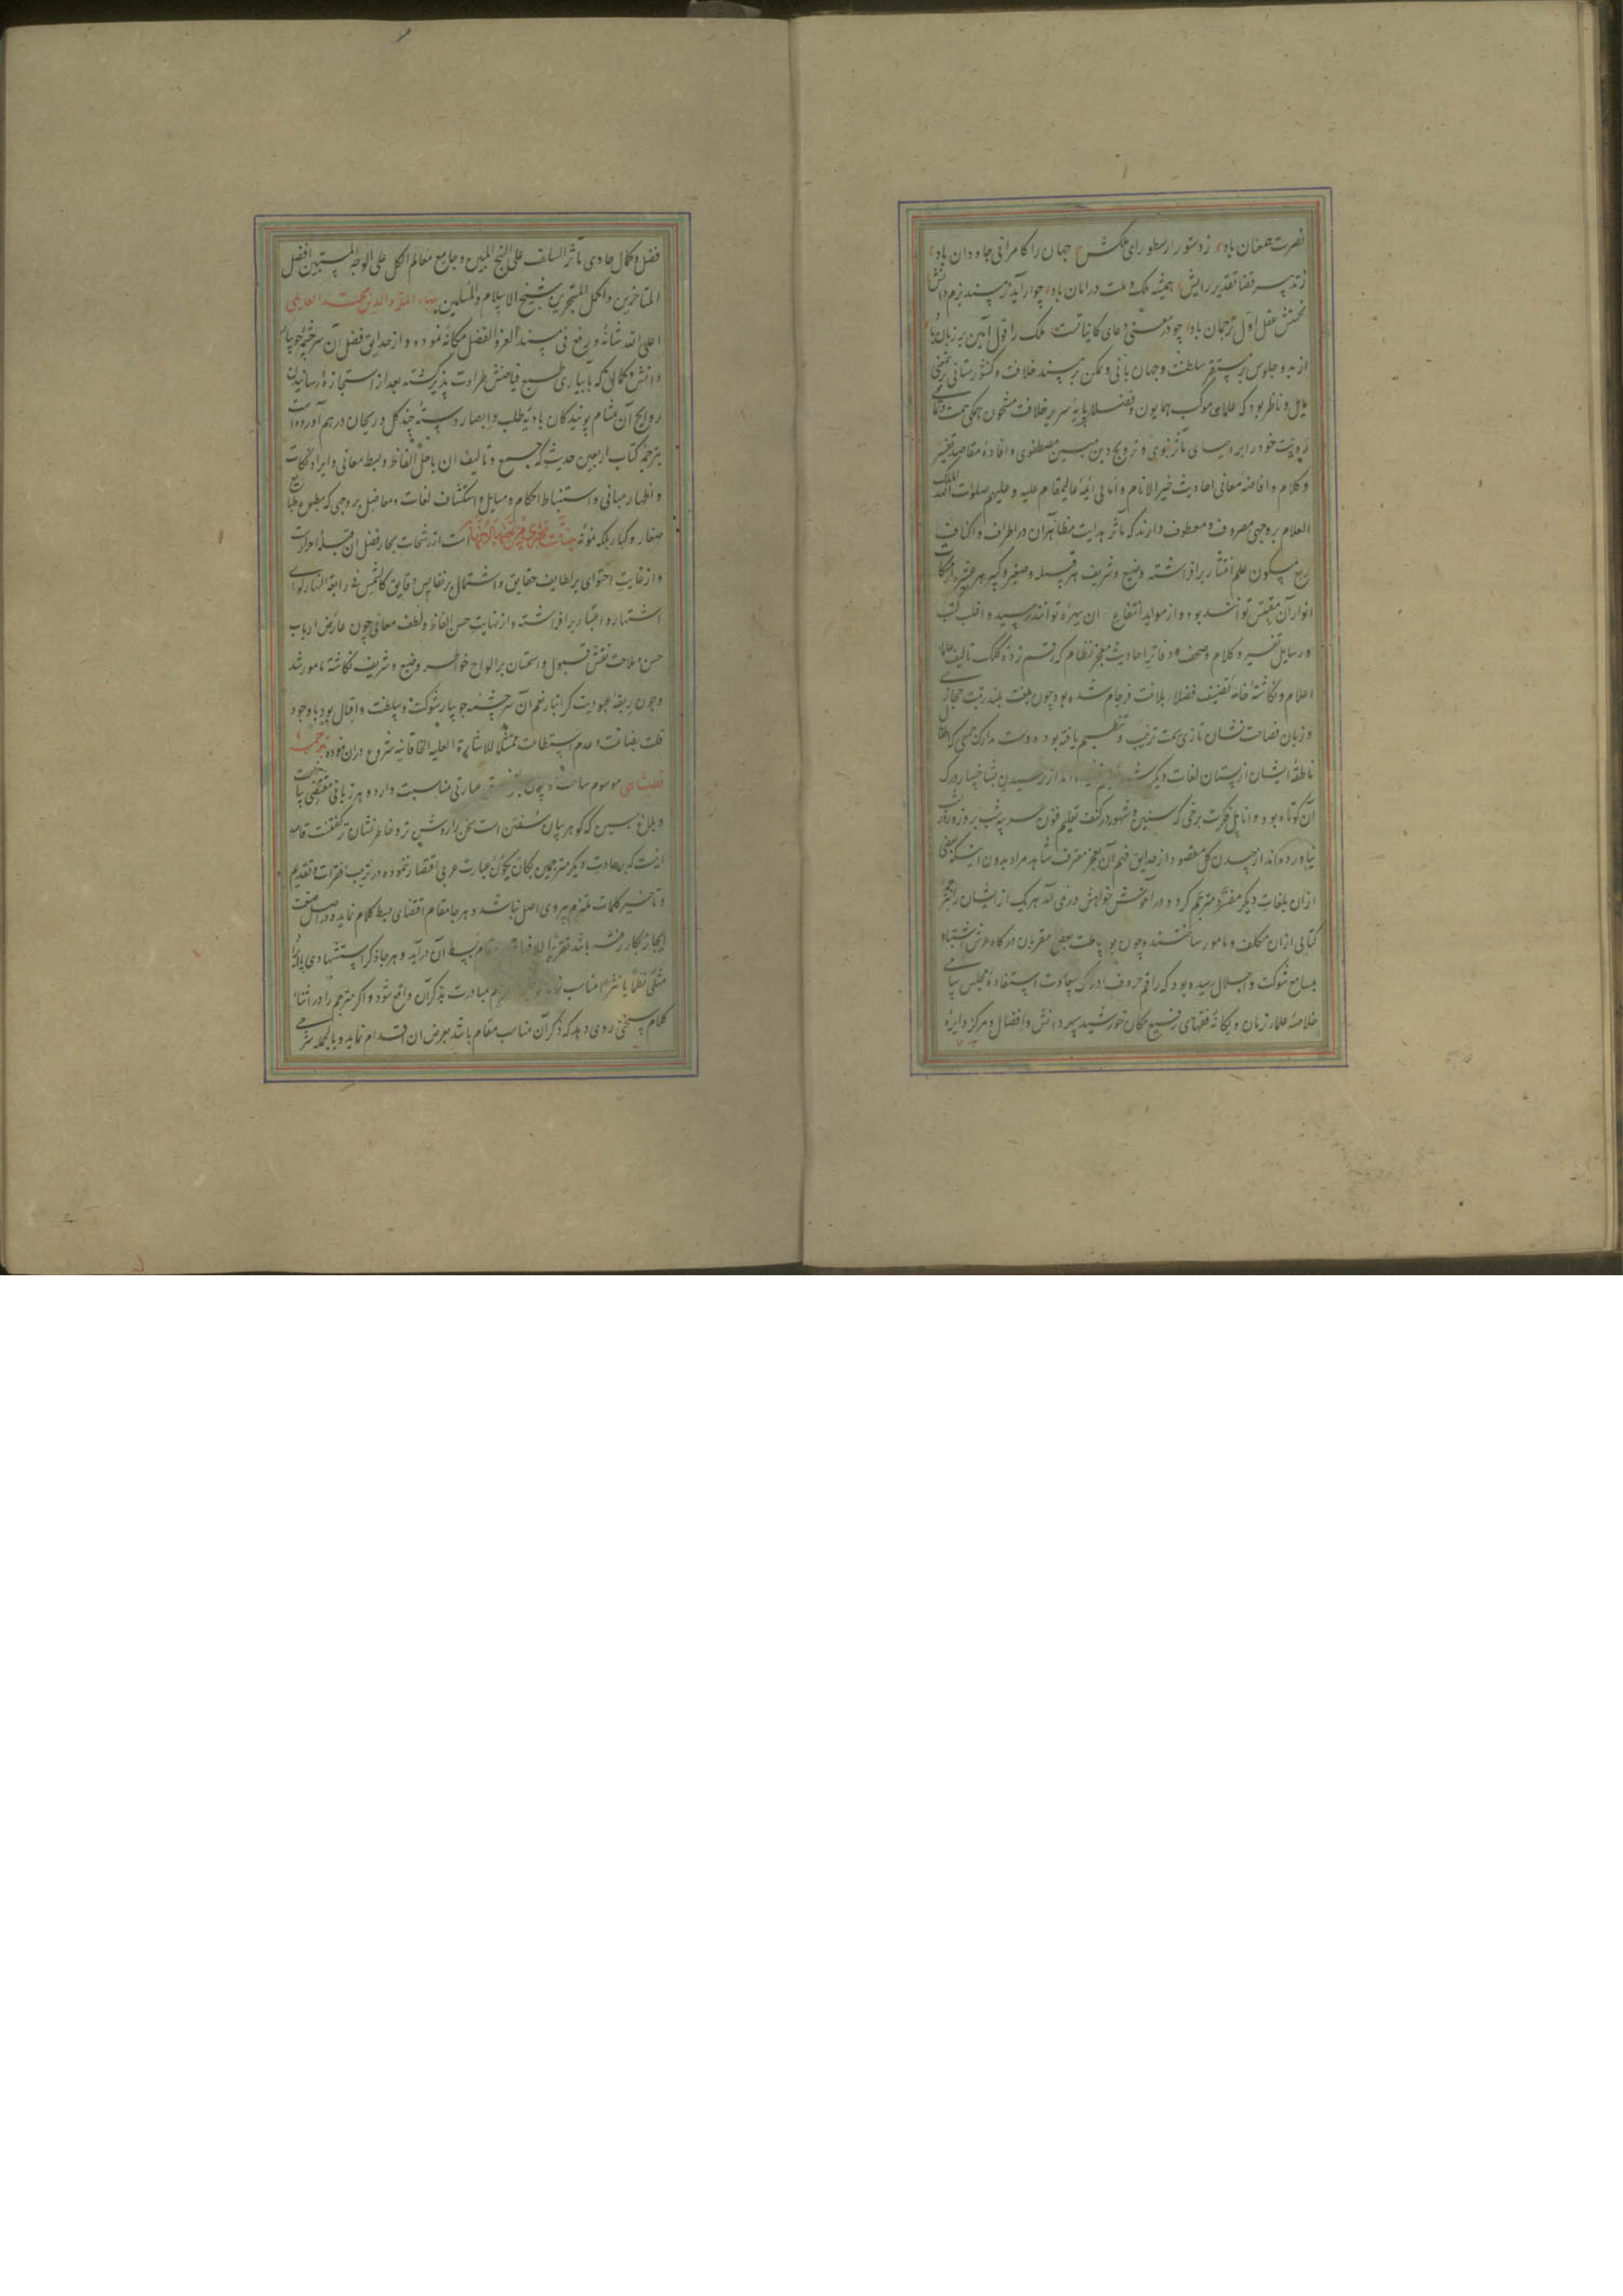 نصرت همعنان باد زدستور ارسطو رای ملکش جهان را کامرانی جاودان باد
زتدبیر قضا تقدیر رایش همیشه ملک و ملت در امان باد چو آراید زمسند بزم دانش
نخستش عقل اول ترجمان باد چو در معنی دعای کایناتست ملک را قول آمین بر زبان باد
از بدو جلوس بر مستقر سلطنت و جهان بانی و تمکن بر مسند خلافت و کشورستانی
مایل و ناظر بود که علمای موکب همایون و فضلا پایهٔ سریر خلافت مشحون همگی همت و تمامی
رویت خود را بر احیای مآثر نبوی و ترویج دین مبین مصطفوی و افادهٔ مقاصد تفسیر
و کلام و افاضهٔ معانی احادیث خیر الانام و امالی ائمهٔ عالیمقام علیه و علیهم صلوات الله الملک
العلام بر وجهی مصروف و معطوف دارند که مآثر هدایت مظاهران در اطراف و اکناف
ربع مسکون علم انتشار برافراشته وضیع و شریف هر قبیله و صغیر و کبیر هر عشیره از مشکات
انوار آن مقتبس توانند بود و از مواید انتفاع ان بهره توانند رسید و اغلب کتب
و رسایل تفسیر و کلام و صحف و دفاتر احادیث معجز نظام که رقم زدهٔ کلک تالیف علمای
اعلام و نگاشتهٔ خامهٔ تصنیف فضلاء بلاغت فرجام شده بود چون بلغت بلند رتبت حجازی
و زبان فصاحت نشان تازی سمت ترتیب و تنظیم یافته بود دست مدارک جمعی که اطفال
ناطقهٔ ایشان از پستان لغات دیگر از رسیدن بشاخسار درک
آن کوتاه بود و انامل فکرت برخی که سنین و شهور در کتف تعلیم فنون عربیه شب بروز و روز بشب
نیاورده‌اند از چیدن گل مقصود از حدایق فهم آن بعجز معترف شاهد مراد بدون اینکه بعضی
ازان بلغات دیگر مفسر و مترجم کردد در آغوش خواهش درنمی آمد هر یک از ایشان را بترجمهٔ
کتابی ازان مکلف و مامور ساختند و چون بوساطت بعضی مقربان درگاه عرش اشتباه
بمسامع شوکت و اجلال رسیده بود که راقم حروف ادراک سعادت استفادهٔ مجلس سامی
خلاصهٔ علماء زمان و یگانهٔ فقهای رفیع مکان خورشید سپهر دانش و افضال و مرکز دایرهٔ
فضل و کمال حاوی مآثر السلف علی النهج المبین و جامع معالم الکل علی الوجه المستبین افضل
المتاخرین و اکمل المتبحرین شیخ الاسلام و المسلمین بهاء الملة والدین محمد العاملی
اعلی الله شانه و رفع فی مسند العز و الفضل مکانه نموده و از حدایق فضل آن سرچشمهٔ جویبار
دانش و کمال که بآبیاری طبع فیاضش طراوت پذیر گشته بعد از استجازه و رسانیدن
روایح آن بمشام پویندگان بادیهٔ طلب و ابصار دستهٔ چند گل و ریحان درهم آورده است
بترجمهٔ کتاب اربعین حدیث که جمیع و تالیف ان باحل الفاظ و بسط معانی و ایراد نکات
و اظهار مبانی و استنباط احکام و مسایل و استکشاف لغات و معاضل بر وجهی که مطبوع طباع
صغار و کبار بلکه نمونهٔ جنات تجری من تحتها الانهار است از رشحات بحار فضل ان قبلهٔ احرارست
و از غایت احتوای بر لطایف حقایق و اشتمال بر نفایس دقایق کالشمس فی رابعة النهار لوای
اشتهار و اعتبار برافراشته و از نهایت حسن الفاظ و لطف معانی چون عارض ارباب
حسن و ملاحت نقش قبول و استحسان بر الواح خواطر وضیع و شریف نگاشته مامور شد
و چون ربقهٔ عبودیت گرانبار نعم آن سرچشمهٔ جویبار شوکت و سلطنت و اقبال بود با وجود
قلت بضاعت و عدم استطاعت ممتثلا للاشارة العلیة الخاقانیه شروع دران نموده بترجمهٔ
قطبشاهی موسوم ساخت و چون عبارتی مناسبت دارد و هر زبانی مقتضی بیانیست
و بلاغ سین که گوهر بیان سفتن است سخن را روشی تر و خاطر نشان تر گفتنست قاصد
انست که بر عادت دیگر مترجمین بگان یگان عبارت عربی اقتصار ننموده در ترتیب فقرات و تقدیم
و تاخیر کلمات ملتزم پیروی اصل نباشد و هر جا مقام اقتضای بسط کلام نماید و در اصل صنعت
ایجاز بکار رفته باشد بسط آن درآید و هر جا ذکر استشهادی یا ایراد
مثلی نظما یا نثرا مناسب مبادرت بذکر آن واقع شود و اگر مترجم را در اثنای
کلام سخنی روی دهد که ذکر آن مناسب مقام باشد بعرض ان اقدام نماید و بالجمله شرحی